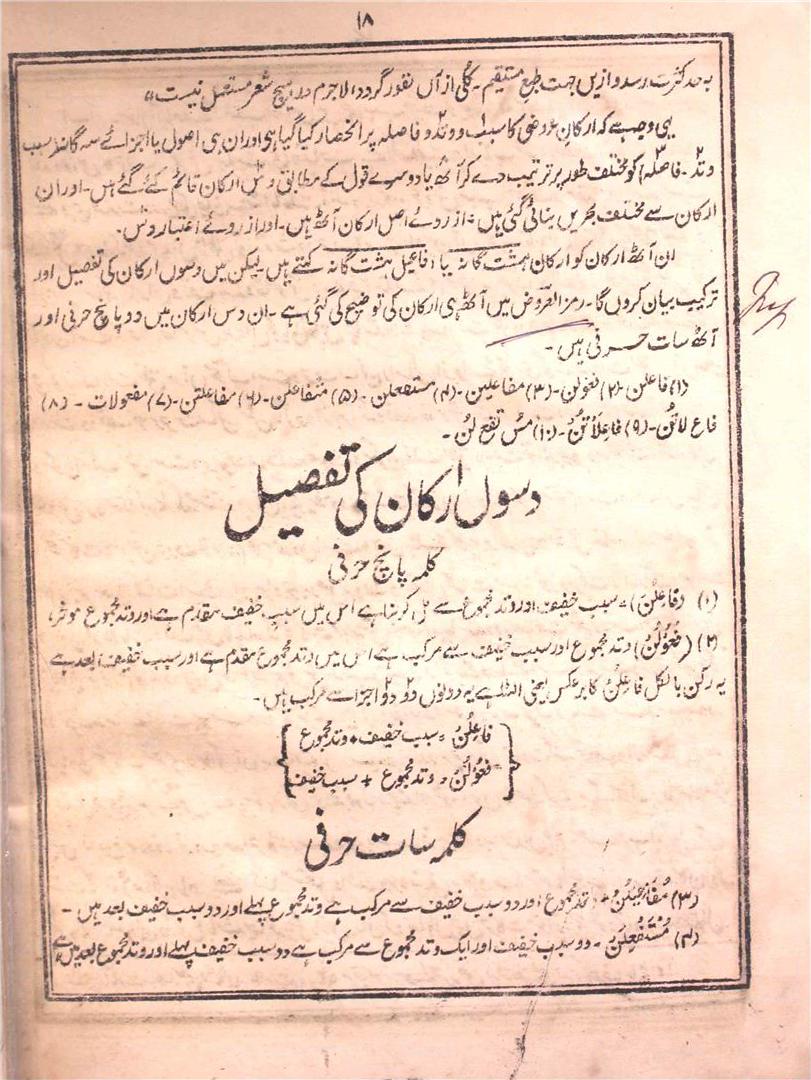 ۱۸
بہ حد کثرت رسد و ازیں جہت طبع مستقیم۔ کلی ازآں نفور گردد الاجرم در ہیچ شعر مستعمل نیست"
یہی وجہ ہے کہ ارکان عروض کا سبب و وتد و فاصلہ پر انحصار کیا گیا ہی اور ان ہی اصول یا اجزائے سہ گانہ سبب
وتد۔ فاصلہ کو مختلف طور پر ترتیب دے کر آٹھ یا دوسرے قول کے مطابق دس ارکان قائم کئے گئے ہیں۔ اور ان
ارکان سے مختلف بحریں بنائی گئی ہیں۔ از روئے اصل ارکان آٹھ ہیں۔ اور از روئے اعتبار دس۔
ان آٹھ ارکان کو ارکان ہشت گانہ یا افاعیل ہشت گانہ کہتے ہیں۔ لیکن میں دسوں ارکان کی تفصیل اور
ترکیب بیان کروں گا۔ رمز العروض میں آٹھ ہی ارکان کی توضیح کی گئی ہے۔ ان دس ارکان میں دو پانچ حرفی اور
آٹھ سات حرفی ہیں۔
(۱) فاعلن۔ (۲) فعولن۔ (۳) مفاعیلن۔ (۴) مستفعلن۔ (۵) متفاعلن۔ (۶) مفاعلتن۔ (۷) مفعولات۔ (۸)
فاع لاتُن۔ (۹) فاعِلَاتُنْ۔ (۱۰) مس تفع لن۔
دسوں ارکان کی تفصیل
کلمہ پانچ حرفی
(۱) (فاعِلُنْ)۔ سبب خفیف اور وتد مجموع سے مل کر بنا ہے اس میں سبب خفیف مقدم ہے اور وتد مجموع موخر،
(۲) (فَعُوْلُنْ) وتد مجموع اور سبب خفیف سے مرکب ہے اس میں وتد مجموع مقدم ہے اور سبب خفیف بعد ہے
یہ رکن بالکل فاعِلُنْ کا برعکس یعنی الٹا ہے یہ دونوں دو دو اجزا سے مرکب ہیں۔
فاعِلُنْ = سبب خفیف + وتد مجموع
فَعُوْلُنْ = وتد مجموع + سبب خفیف
کلمہ سات حرفی
(۳) مُفَاعِیْلُنْ۔ وتد مجموع اور دو سبب خفیف سے مرکب ہے وتد مجموع پہلے اور دو سبب خفیف بعد ہیں۔
(۴) مُسْتَفْعِلُنْ۔ دو سبب خفیف اور ایک وتد مجموع سے مرکب ہے دو سبب خفیف پہلے اور وتد مجموع بعد میں ہے